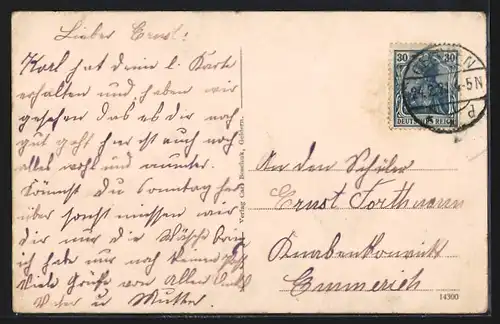 Lieber Ernst!
Karl hat dein l. Karte
erhalten und haben wir
gesehen das es dir noch
gut geht hier ist auch noch
alles wohl und munter.
Kommst Du Sonntag her
über sonst müssen wir
dir nur die Wäsche
ich habe nur noch keine
Viele Grüße von Allen
Vater u Mutter.
Verlag Carl Boschuk, Geldern.
30 30
DEUTSCHES REICH
GELDERN
4-5N
An den Schüler
Ernst Forthmann
Knabenkonvikt
Emmerich
14300